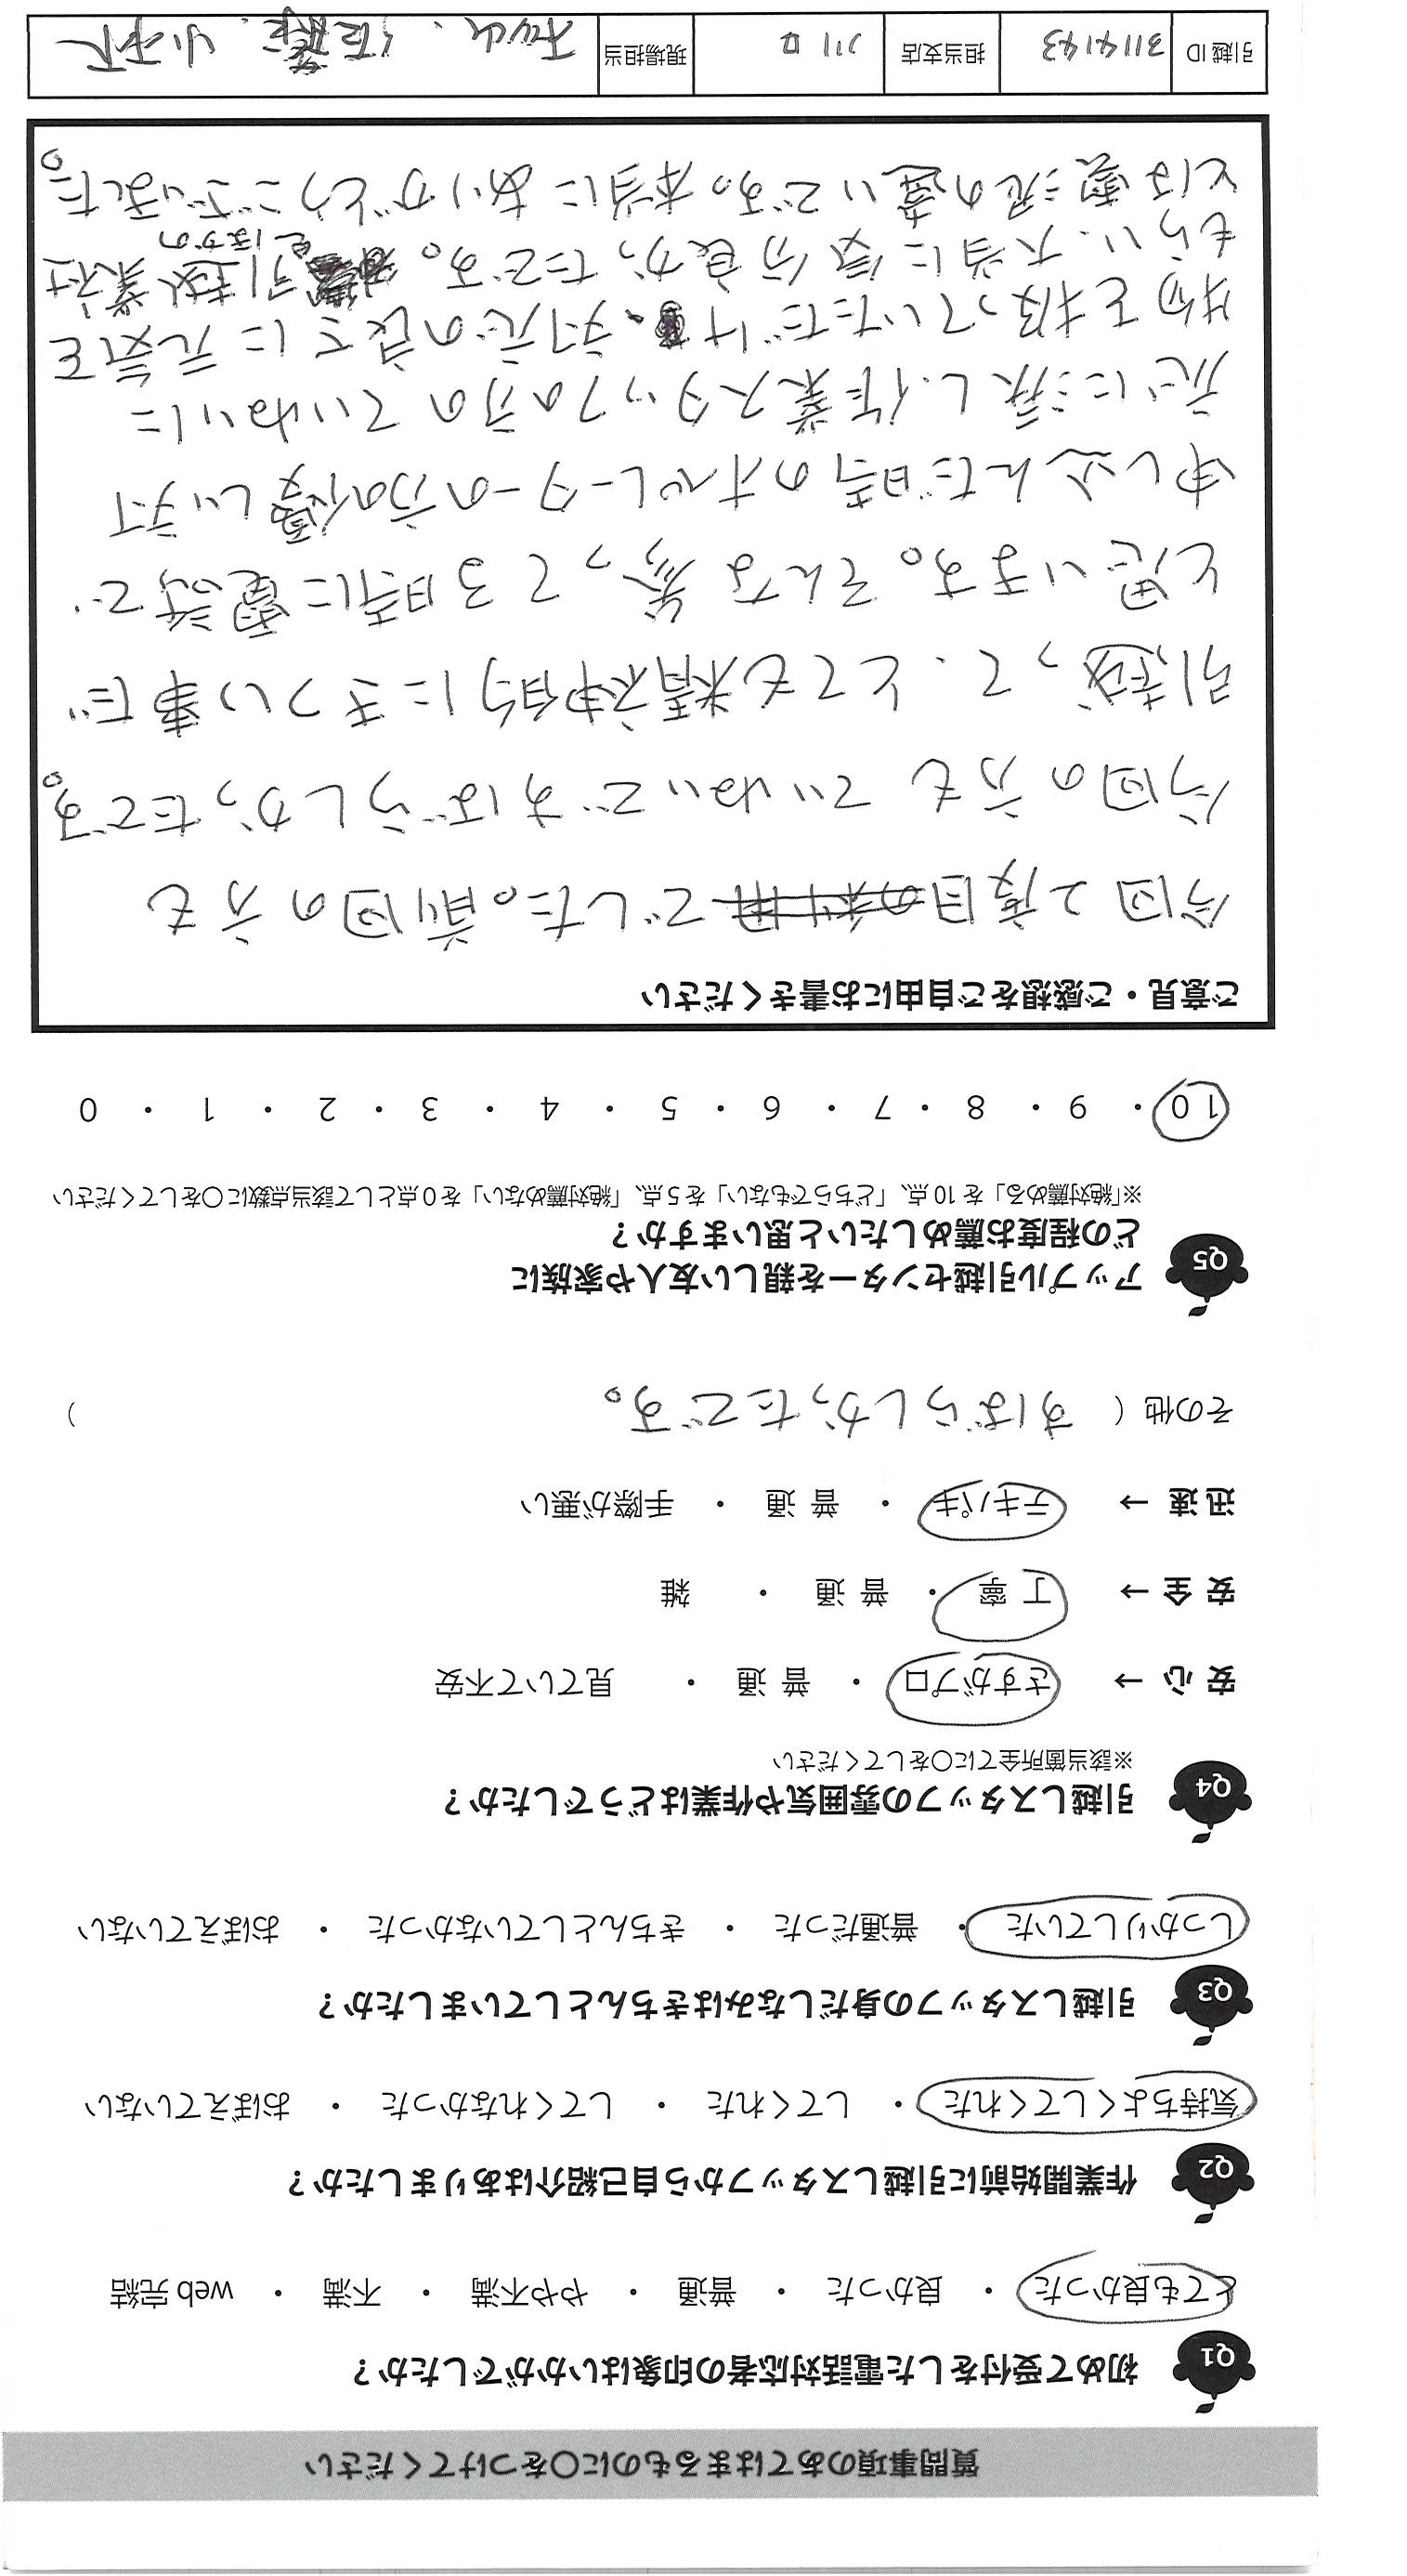 質問事項のあてはまるものに○をつけてください
Q1 初めて受付をした電話対応者の印象はいかがでしたか？
とても良かった ・ 良かった ・ 普通 ・ やや不満 ・ 不満 ・ web 完結
Q2 作業開始前に引越しスタッフから自己紹介はありましたか？
気持ちよくしてくれた ・ してくれた ・ してくれなかった ・ おぼえていない
Q3 引越しスタッフの身だしなみはきちんとしていましたか？
しっかりしていた ・ 普通だった ・ きちんとしていなかった ・ おぼえていない
Q4 引越しスタッフの雰囲気や作業はどうでしたか？
※該当箇所全てに○をしてください
安心 → さすがプロ ・ 普通 ・ 見ていて不安
安全 → 丁寧 ・ 普通 ・ 雑
迅速 → テキパキ ・ 普通 ・ 手際が悪い
その他（ すばらしかったです。 ）
Q5 アップル引越センターを親しい友人や家族に
どの程度お薦めしたいと思いますか？
※「絶対薦める」を 10 点、「どちらでもない」を 5 点、「絶対薦めない」を 0 点として該当点数に○をしてください
10 ・ 9 ・ 8 ・ 7 ・ 6 ・ 5 ・ 4 ・ 3 ・ 2 ・ 1 ・ 0
ご意見・ご感想をご自由にお書きください
今回2度目の利用でした。前回の方も
今回の方も ていねいですばらしかったです。
引越って、とても精神的にきつい事だ
と思います。そんな 参って3時に電話で、
申し込んだ時のオペレーターの方の優しい対
応に涙し、作業スタッフの方のていねいに
物を扱っていただけ、対応の良さに元気を
もらい、大当に気分良かったです。引越業社
とほかの
とは雲泥の違いです。本当にありがとうございました。
引越 ID 31141143 担当支店 川口 現場担当 佐藤、小木